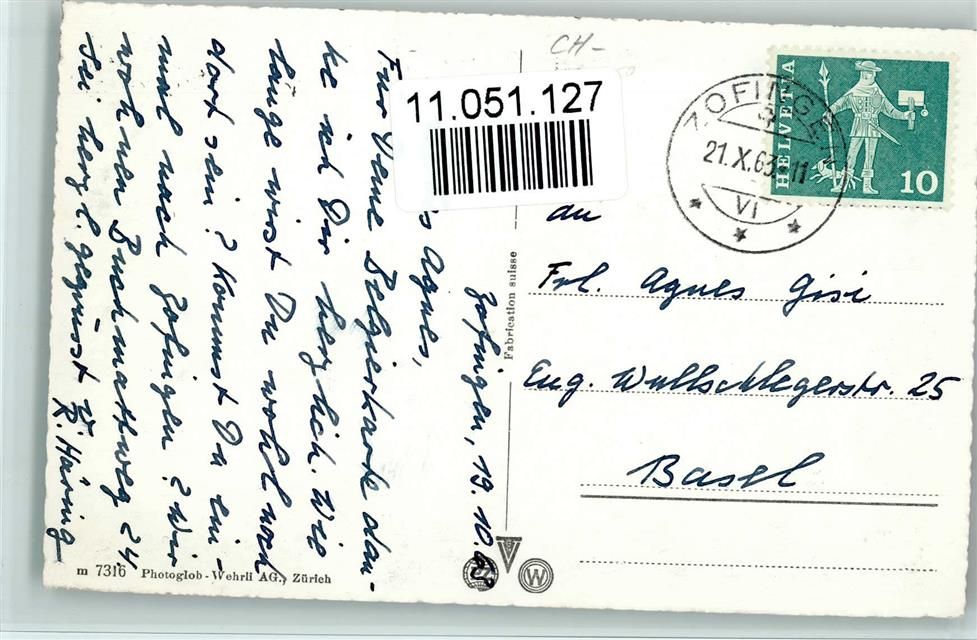 Zofingen, 19. 10. 63
s Agnes,
Für Deine Belgierkarte dan-
ke ich Dir herzlich. Wie
lange wirst Du wohl noch
dort sein? Kommst Du ein-
mal nach Zofingen? Wir
wohnen Buchmattweg 24
Sei herzl. gegrüsst v.
R. Häring
11.051.127
CH-
ZOFINGEN
21.X.63-11
VI
HELVETIA
10
an
Frl. Agnes Gisi
Eug. Wullschlegerstr. 25
Basel
Fabrication suisse
m 7316 Photoglob-Wehrli AG., Zürich
W